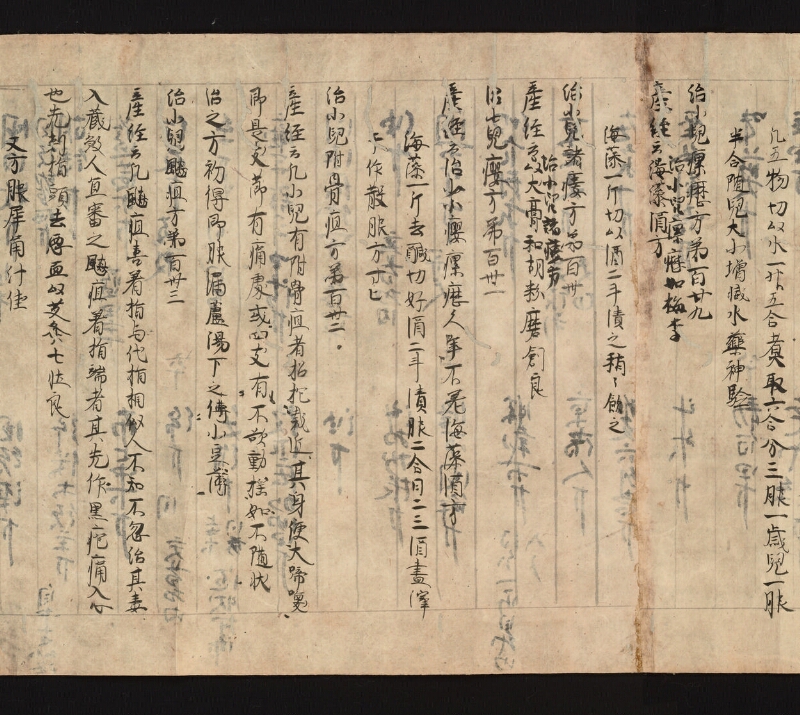 凡五物切以水一升五合煮取六合分三服一歳兒一服
半合随兒大小増減水藥神驗
治小兒瘰癧方第百廿九
産經云治小兒瘰癧如梅李
海藻酒方
海藻一斤切以酒二斗漬之稍々飲之
治小兒諸瘻方第百卅
産經云治小兒諸瘻方
以大膏和胡粉磨創良
治小兒癭方第百卅一
産經云治小小癭瘰癧久年不差海藻酒方
海藻一斤去鹹切好酒二斗漬服二合日二三酒盡滓
作散服方寸匕
治小兒附骨疽方第百卅二
産經云凡小兒有附骨疽者抱挍裁近其身便大啼喚
即是支節有痛處或四支有不欲動揺如不随状
治之方初得即服漏蘆湯下之傅小豆薄
治小兒瘭疽方第百卅三
産經云凡瘭疽喜著指与代指相似人不知不忽治其毒
入蔵煞人宜審之瘭疽著指端者其先作黒疱痛入心
也先刺指頭去悪血以艾灸七壮良
又方服犀角汁佳